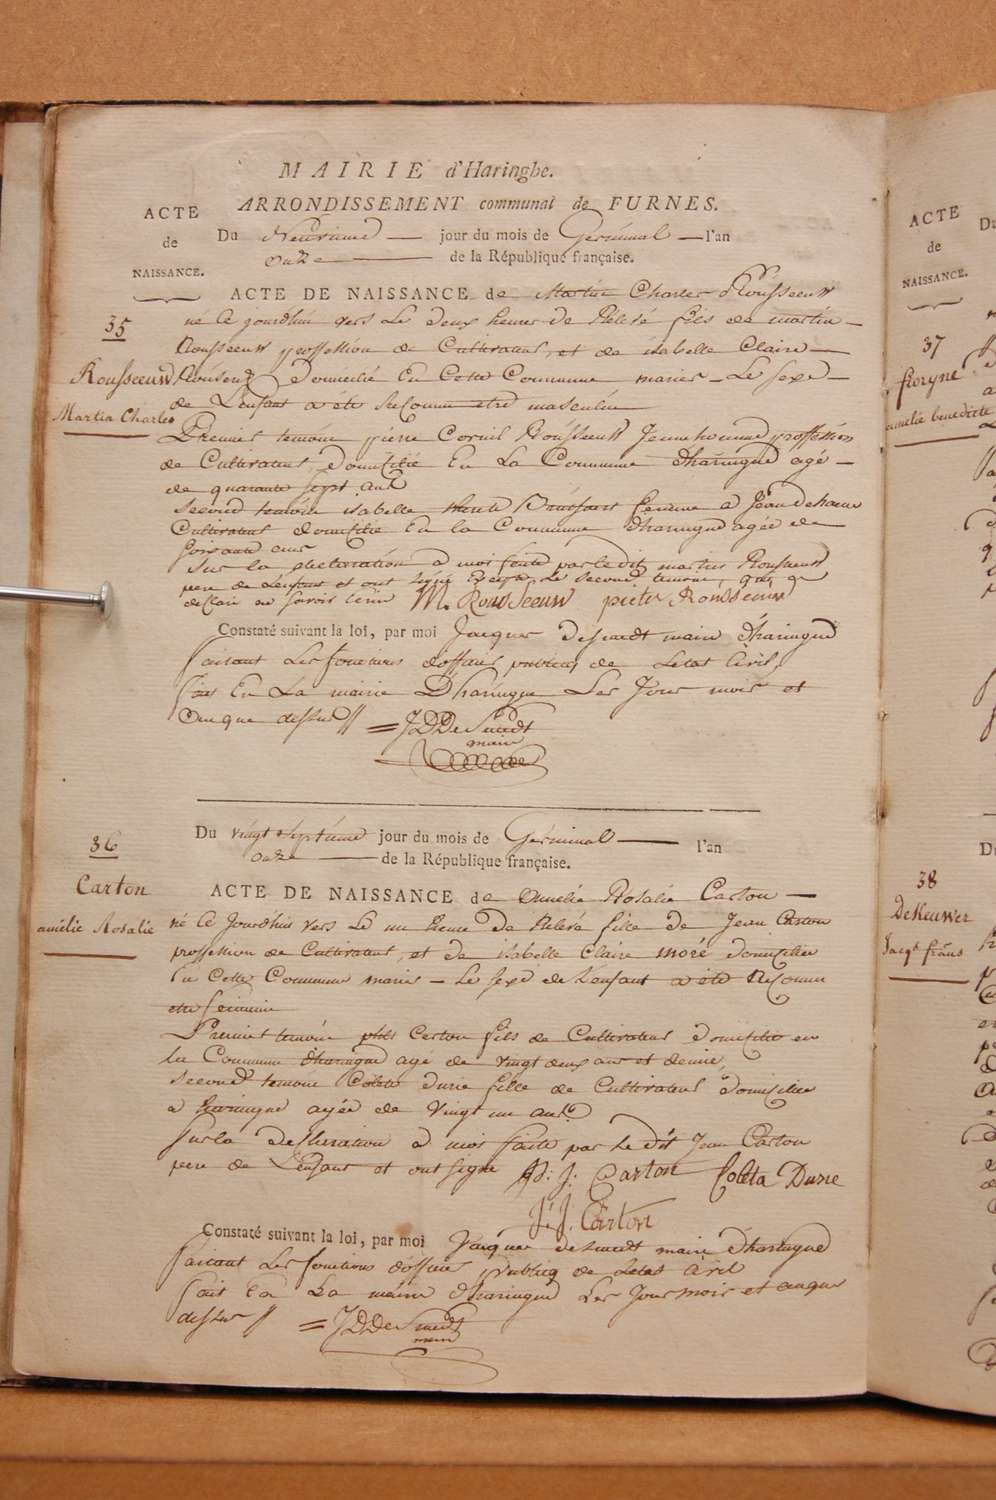 MAIRIE d'Haringhe.
ARRONDISSEMENT communal de FURNES.
ACTE
de
NAISSANCE.
Du Neuvieme jour du mois de Germinal l'an
onze de la République française.
ACTE DE NAISSANCE de Martin Charles Rousseeuw
35
Rousseeuw
Martin Charles
né Ce jourdhui vers Les deux heures de Relevé fils de martin
Rousseeuw proffession de Cultivateur, et de isabelle Claire
domicilié En Cette Commune mariés Le sexe
de L'enfant a été Reconnu etre masculin
Premier temoin piere Corneil Rousseeuw Jeune homme proffession
de Cultivateur, domicilié En La Commune dharingue agé
de quarante sept ans
second temoin isabelle femme a Jean
Cultivateur domicilié En la Commune dharingue agée de
soixante ans
Sur la declaration a moi faite par le dit martin Rousseeuw
pere de Lenfant et ont signé Excepté Le second temoin, qui a
declaré ne savoir Ecrire M. Rousseeuw pieter Rousseeuw
Constaté suivant la loi, par moi Jacques Desmedt maire d'haringue
faisant Les fonctions d'officier publicq de Letat Civil,
fait En La mairie D'haringue Les Jour mois et
an que dessus = J D De Smedt
maire
36
Carton
amélie Rosalie
Du vingt septieme jour du mois de Germinal l'an
onze de la République française.
ACTE DE NAISSANCE de Amelie Rosalie Carton
né Ce Jourdhui vers Le une heure de Relevé fille de Jean Carton
proffession de Cultivateur, et de isabelle Claire moré domicilié
En Cette Commune mariés Le sexe de L'enfant a été Reconnu
etre feminin
Premier temoin Carton fils de Cultivateur domicilié en
La Commune dharingue agé de vingt deux ans et demie,
second temoin Colete durie fille de Cultivateur domicilié
a haringue agée de Vingt un ans
Sur la declaration a moi faite par le dit Jean Carton
pere de L'enfant et ont signé P: J: Carton Coleta Durie
J. J. Carton
Constaté suivant la loi, par moi Jacques desmedt maire D'haringue
faisant Les fonctions d'officier publicq de Letat Civil
fait En La mairie d'haringue Les Jour mois et an que
dessus = J D De Smedt
maire
ACTE
de
NAISSANCE.
Du
37
Floryne
amélie benedicte
Du
38
DeKeuwer
Jacqs frans